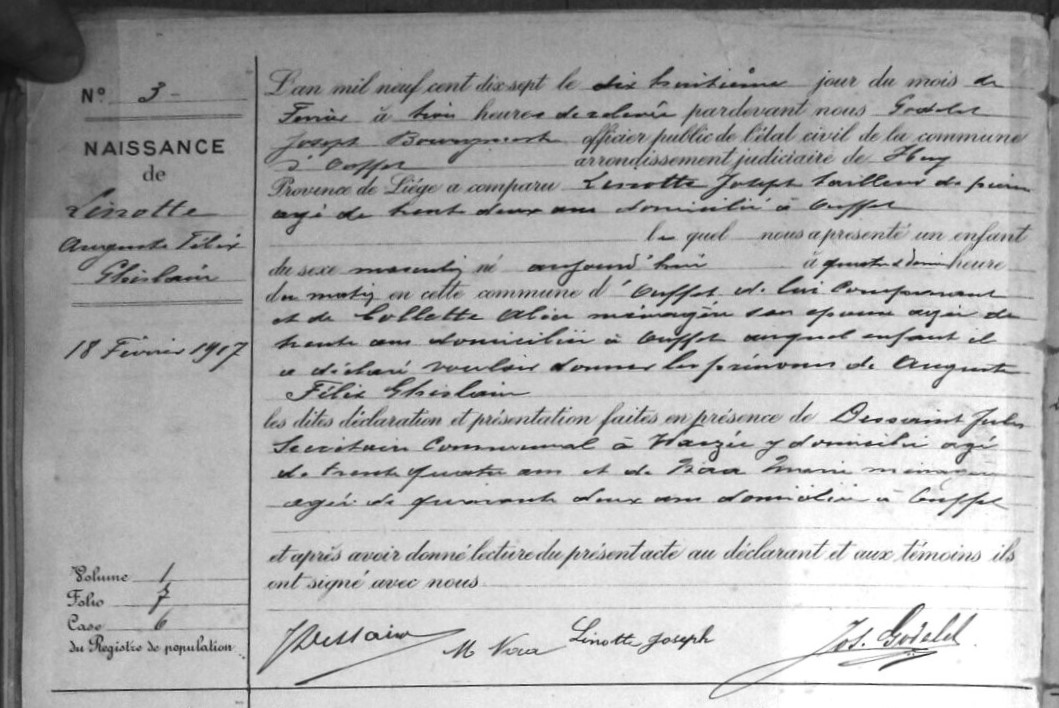 N° 3
NAISSANCE
de
Linotte
Auguste Félix
Ghislain
18 Février 1917
Volume 1
Folio
Case 6
du Registre de population
L'an mil neuf cent dix sept le dix huitième jour du mois de
Février à trois heures de relevée pardevant nous Godelet
Joseph Bourgmestre officier public de l'état civil de la commune
d'Ouffet arrondissement judiciaire de Huy
Province de Liége a comparu Linotte Joseph tailleur de pierre
agé de trent deux ans domicilié à Ouffet
le quel nous a présenté un enfant
du sexe masculin né aujourd'hui à quatre & demi heure
du matin en cette commune d'Ouffet de lui Comparant
et de Collette Alice ménagère son épouse agée de
trente ans domiciliée à Ouffet auquel enfant il
a déclaré vouloir donner les prénoms de Auguste
Félix Ghislain
les dites déclaration et présentation faites en présence de Dessaint Jules
Secrétaire Communal à Warzée y domicilié agé
de trente quatre ans et de Marie ménagère
agée de quarante deux ans domiciliée à Ouffet
et après avoir donné lecture du présent acte au déclarant et aux témoins ils
ont signé avec nous
JDessain M Linotte Joseph Jos. Godelet